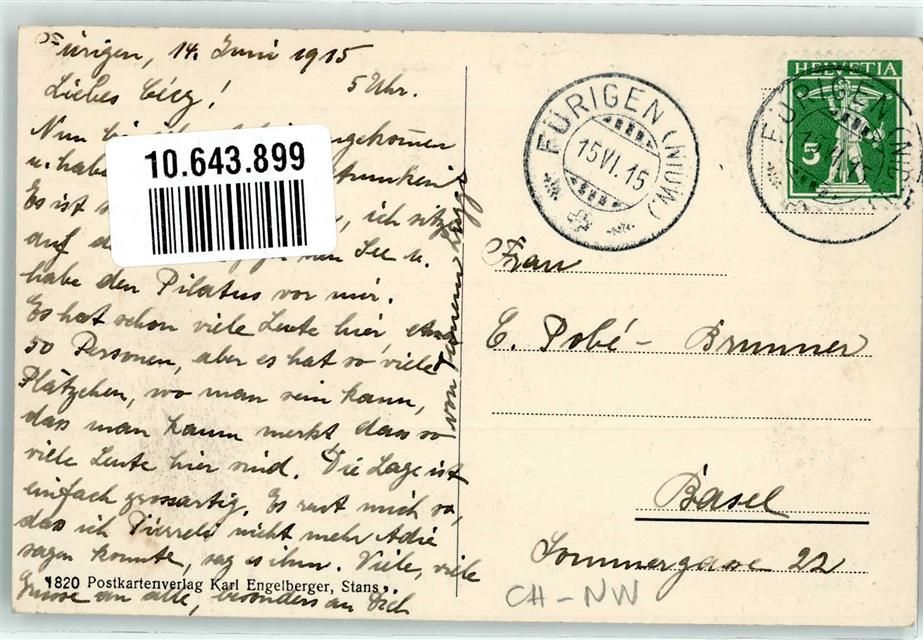 Fürigen, 14. Juni 1915
Liebes 5 Uhr.
Nun
u. habe
Es ist ich sitze
auf See u.
habe den Pilatus vor mir.
Es hat schon viele Leute hier, etwa
50 Personen, aber es hat so viele
Plätzchen, wo man sein kann,
dass man kaum merkt dass so
viele Leute hier sind. Die Lage ist
einfach grossartig. Es reut mich so,
das ich Pierreli nicht mehr Adie
sagen konnte, sag es ihm. Viele, viele
Grüsse an alle, besonders an Dich
von
10.643.899
1820 Postkartenverlag Karl Engelberger, Stans
FÜRIGEN (NIDW.)
15.VI.15
HELVETIA
5
FÜRIGEN (NIDW.)
Frau
E. Pobé-Brunner
Basel
Sommergasse 22
CH-NW